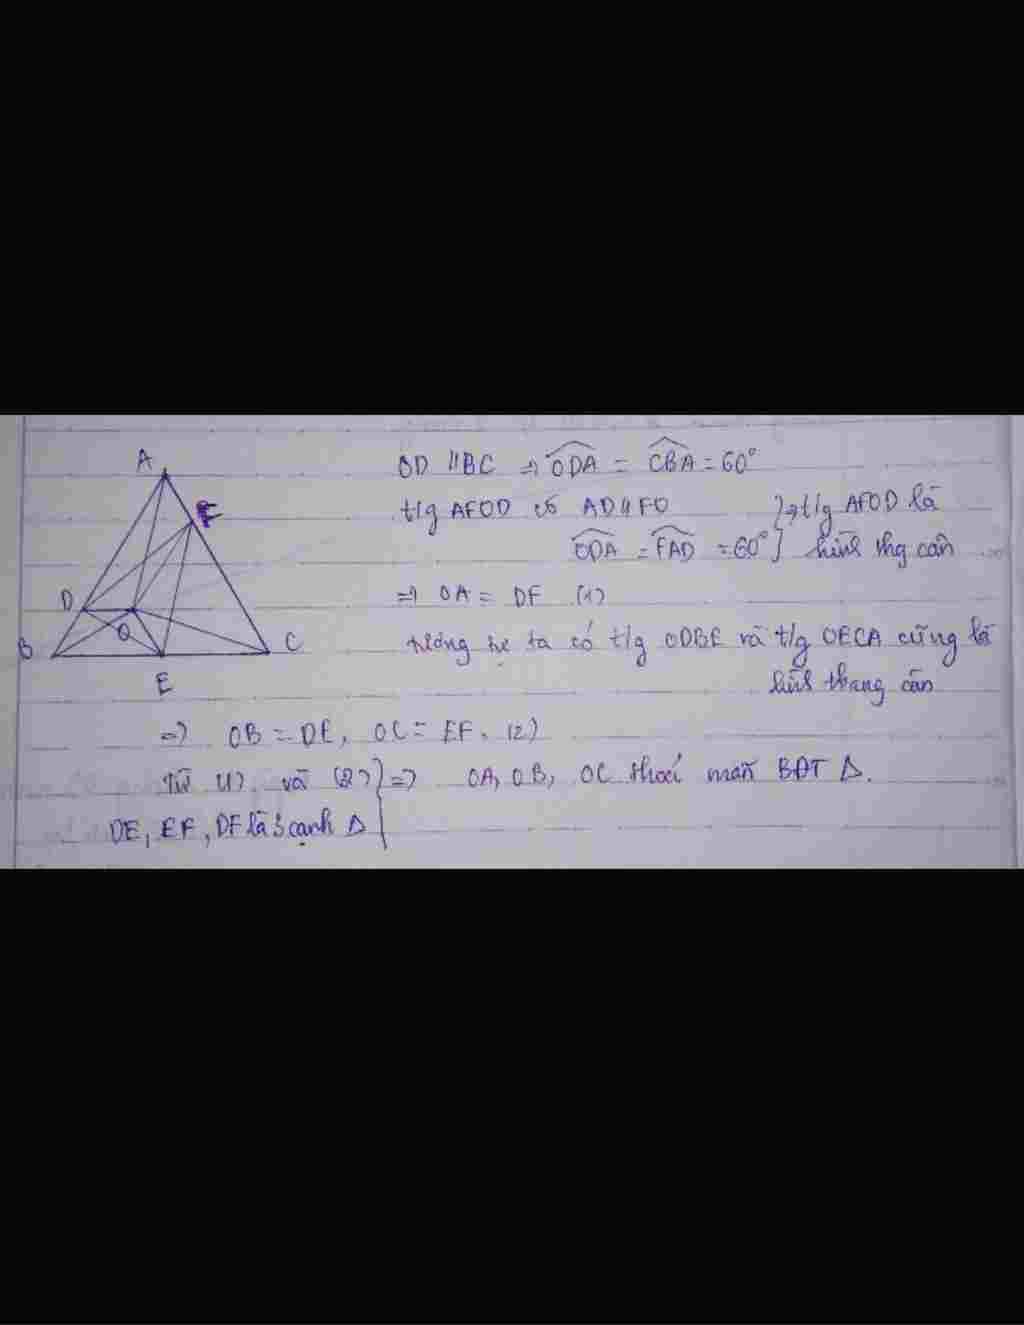 A
F
D
O
B
C
E
OD // BC ⇒ ODA = CBA = 60°
t/g AFOD có AD // FO } ⇒ t/g AFOD là
ODA = FAD = 60° } hình thg cân
⇒ OA = DF (1)
tương tự ta có t/g ODBE và t/g OECA cũng là
hình thang cân
⇒ OB = DE, OC = EF. (2)
Từ (1) và (2) } ⇒ OA, OB, OC thoả mãn BĐT Δ.
DE, EF, DF là 3 cạnh Δ